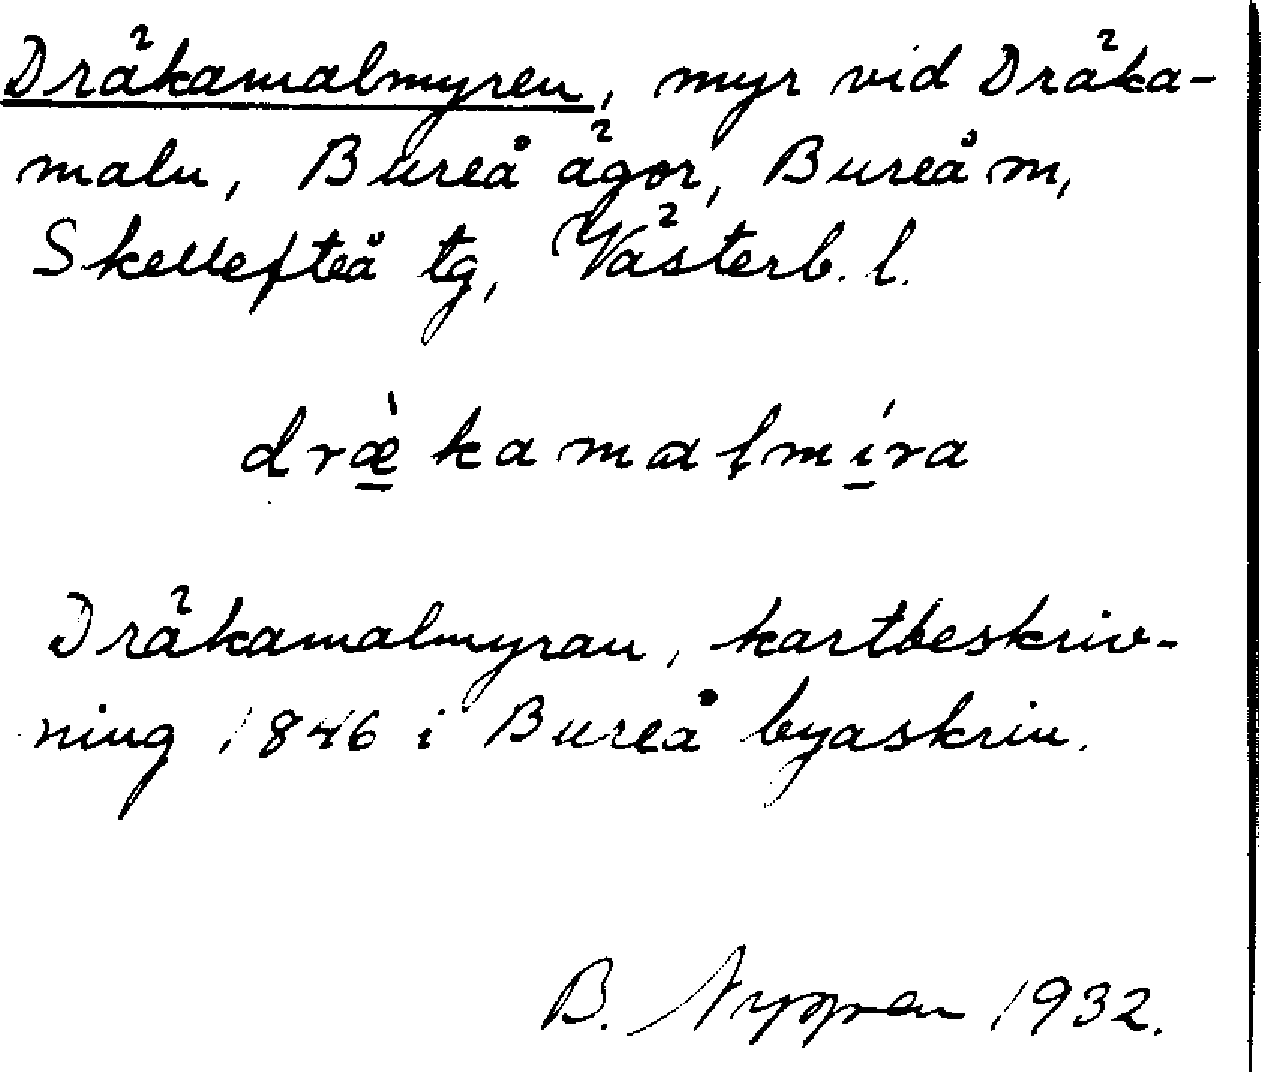 Dräkamalmyren, myr vid Dräka-
maln, Bureå ägor, Bureå m,
Skellefteå tg, Västerb. l.
dræ̀kamalmíra
Dräkamalmyran, kartbeskriv-
ning 1846 i Bureå byaskrin.
B. 1932.